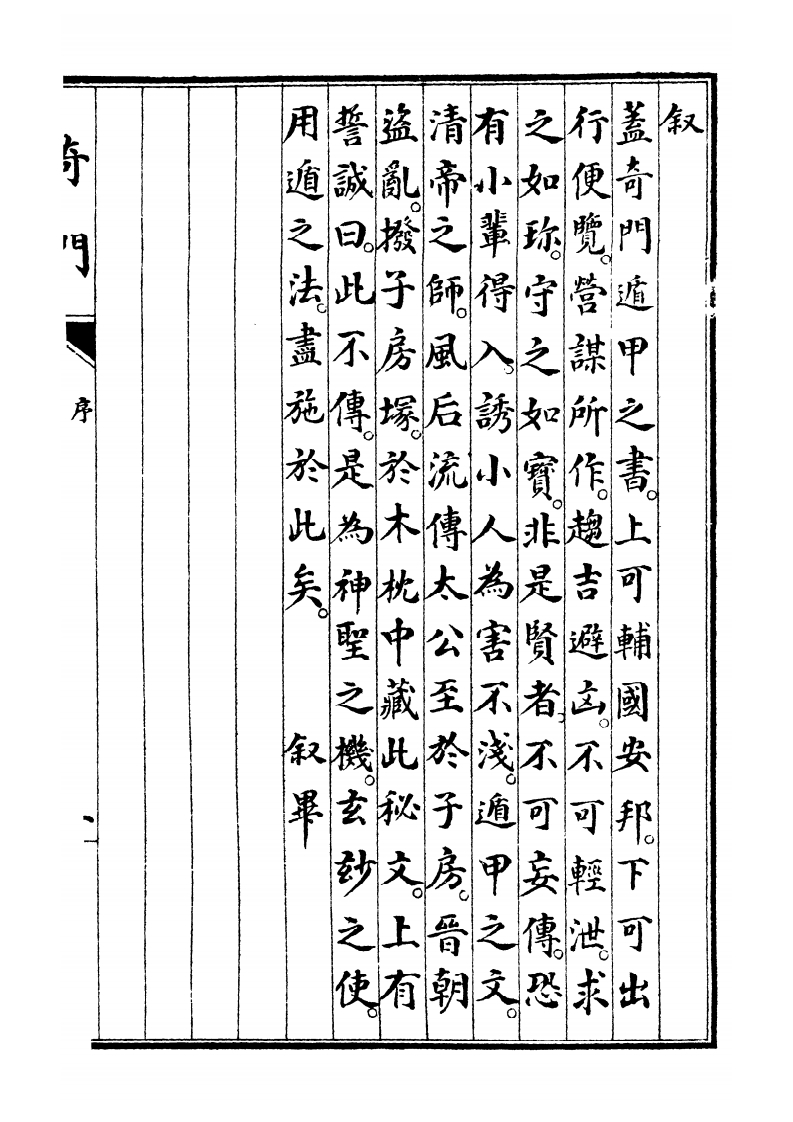 叙
蓋奇門遁甲之書。上可輔國安邦。下可出
行便覽。營謀所作。趨吉避凶。不可輕泄。求
之如珎。守之如寶。非是賢者。不可妄傳。恐
有小輩得入。誘小人為害不淺。遁甲之文。
清帝之師。風后流傳太公至於子房。晉朝
盜亂。撥子房塚。於木枕中藏此秘文。上有
誓誠曰。此不傳。是為神聖之機。玄玅之使。
用遁之法。盡施於此矣。 叙畢
奇門
序
一